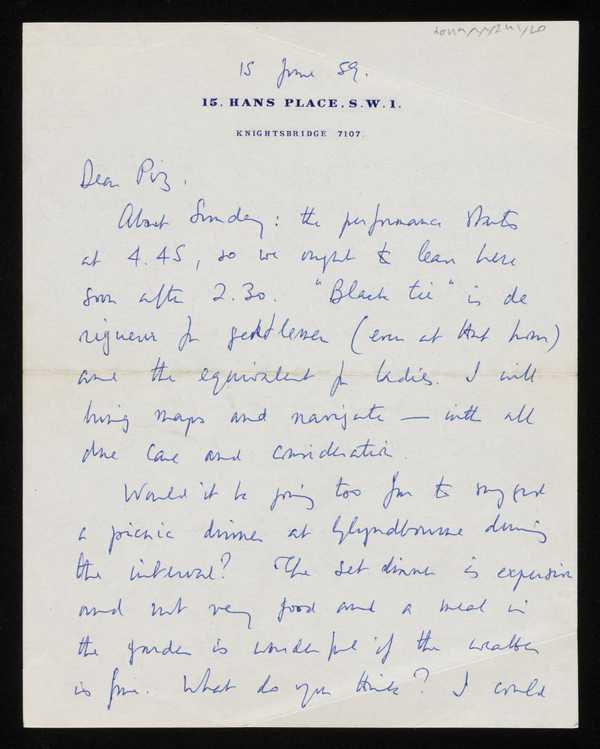 15 June 59.
15. HANS PLACE. S.W.1.
KNIGHTSBRIDGE 7107
Dear Piz,
About Sunday: the performance starts
at 4.45, so we ought to leave here
soon after 2.30. "Black tie" is de
rigueur for gentlemen (even at that hour)
and the equivalent for ladies. I will
bring maps and navigate — with all
due care and consideration.
Would it be going too far to suggest
a picnic dinner at Glyndbourne during
the interval? The set dinner is expensive
and not very good and a meal in
the garden is wonderful if the weather
is fine. What do you think? I could